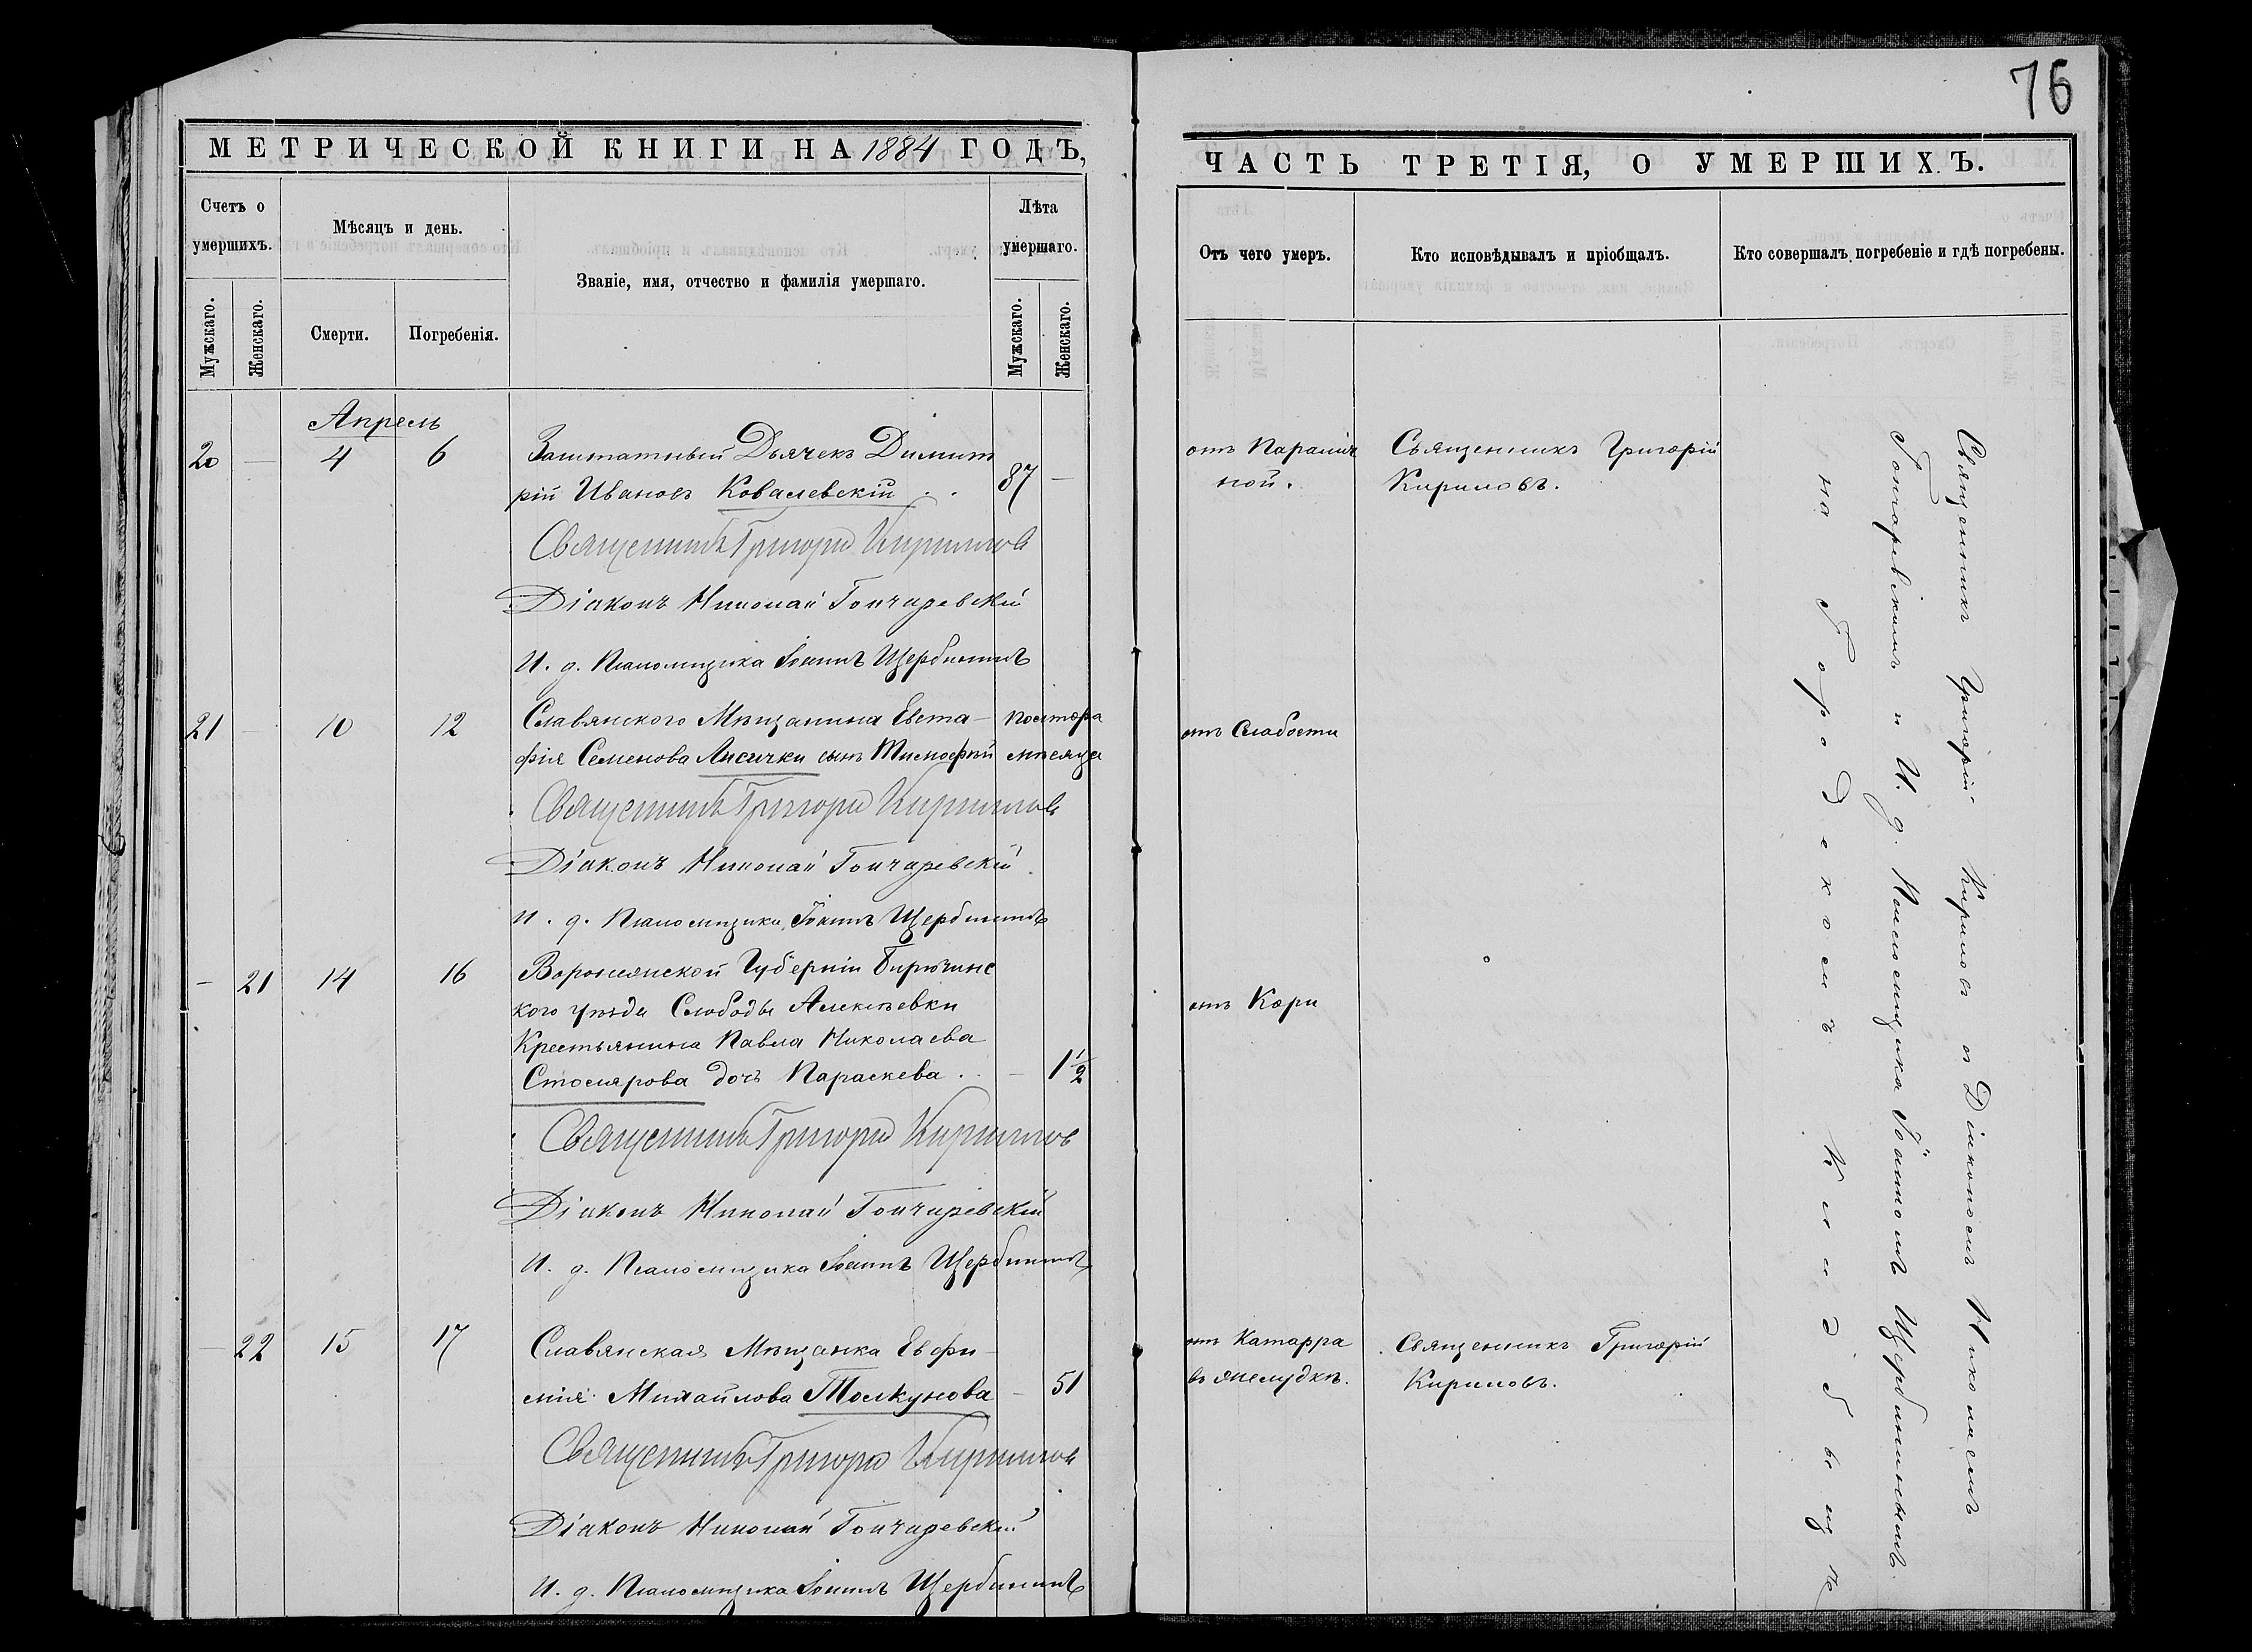 76
МЕТРИЧЕСКОЙ КНИГИ НА 1884 ГОДЪ,
Счетъ о умершихъ.
Мужскаго.
Женскаго.
Мѣсяцъ и день.
Смерти.
Погребенія.
Званіе, имя, отчество и фамилія умершаго.
Лѣта умершаго.
Мужскаго.
Женскаго.
Апрель
20 — 4 6 Заштатный Дьячекъ Димит
рій Ивановъ Ковалевскій . . 87 —
Священникъ Григорій Кириловъ
Діаконъ Николай Гончаревскій
И. д. Псаломщика Іоаннъ Щербининъ
21 — 10 12 Славянскаго Мѣщанина Евста- полтора
фія Семенова Лисички сынъ Тимофѣй мѣсяца
Священникъ Григорій Кириловъ
Діаконъ Николай Гончаревскій
И. д. Псаломщика Іоаннъ Щербининъ
— 21 14 16 Воронежской Губерніи Бирюченс
кого уѣзда Слободы Алексѣевки
Крестьянина Павла Николаева
Столярова дочь Параскева . — 1 1/2
Священникъ Григорій Кириловъ
Діаконъ Николай Гончаревскій
И. д. Псаломщика Іоаннъ Щербининъ
— 22 15 17 Славянская Мѣщанка Евфи-
мія Михайлова Толкунова — 51
Священникъ Григорій Кириловъ
Діаконъ Николай Гончаревскій
И. д. Псаломщика Іоаннъ Щербининъ
ЧАСТЬ ТРЕТІЯ, О УМЕРШИХЪ.
Отъ чего умеръ.
Кто исповѣдывалъ и пріобщалъ.
Кто совершалъ погребеніе и гдѣ погребены.
ной.
Священникъ Григорій
Кириловъ.
отъ Слабости
отъ Кори
отъ Катарра
въ желудкѣ.
Священникъ Григорій
Кириловъ.
Священникъ Григорій Кириловъ съ Діакономъ Николаемъ
Гончаревскимъ и И. д. Псаломщика Іоанномъ Щербининымъ
на Городскомъ Кладбищѣ